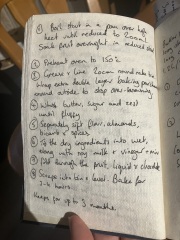 ① Boil fruit in a pan over low
heat until reduced to 200ml
Soak fruit overnight in reduced
② Preheat oven to 150°
③ Grease + line 20cm round cake tin
Wrap extra baking
around outside to stop over browning
④ Whisk butter, sugar and zest
until fluffy
⑤ Separately sift flour, almonds,
+ spices
⑥ Tip the dry ingredients into wet,
along with milk + vinegar + mix
⑦ Fold through the fruit, liquid + chocolate
⑧ Scrape into tin + level. Bake for
3-4 hours
Keeps for up to 3 months